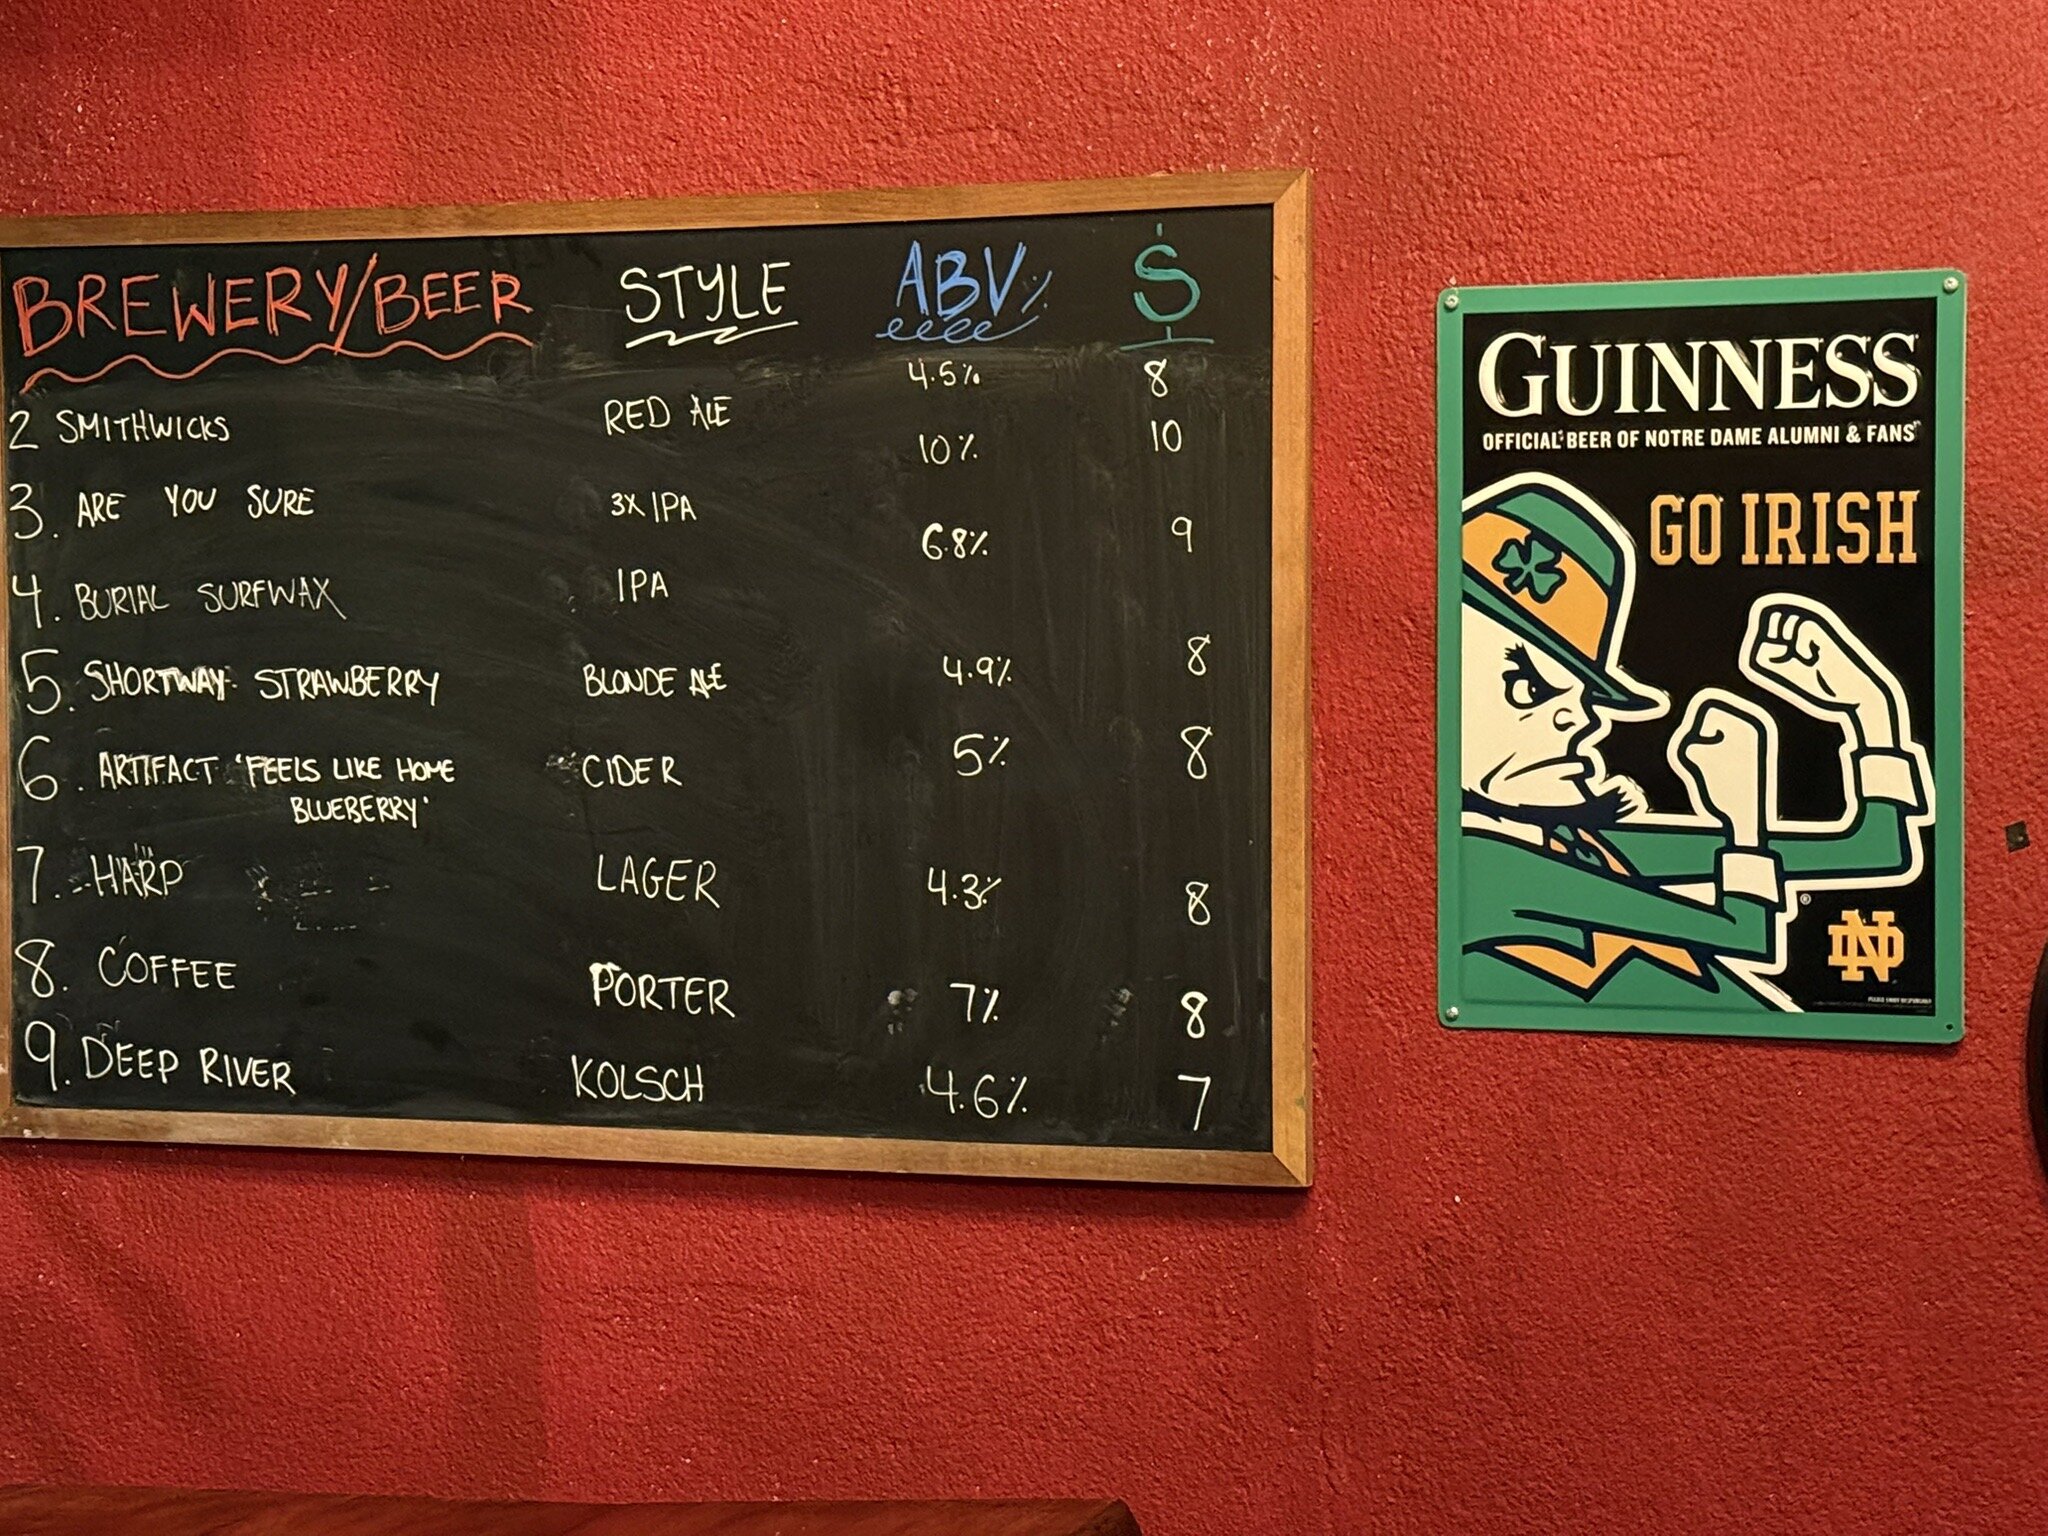 BREWERY/BEER STYLE ABV% $
2 SMITHWICKS RED ALE 4.5% 8
3. ARE YOU SURE 3X IPA 10% 10
4. BURIAL SURFWAX IPA 6.8% 9
5. SHORTWAY STRAWBERRY BLONDE ALE 4.9% 8
6. ARTIFACT 'FEELS LIKE HOME CIDER 5% 8
BLUEBERRY'
7. HARP LAGER 4.3% 8
8. COFFEE PORTER 7% 8
9. DEEP RIVER KOLSCH 4.6% 7
GUINNESS
OFFICIAL BEER OF NOTRE DAME ALUMNI & FANS
GO IRISH
®
ND